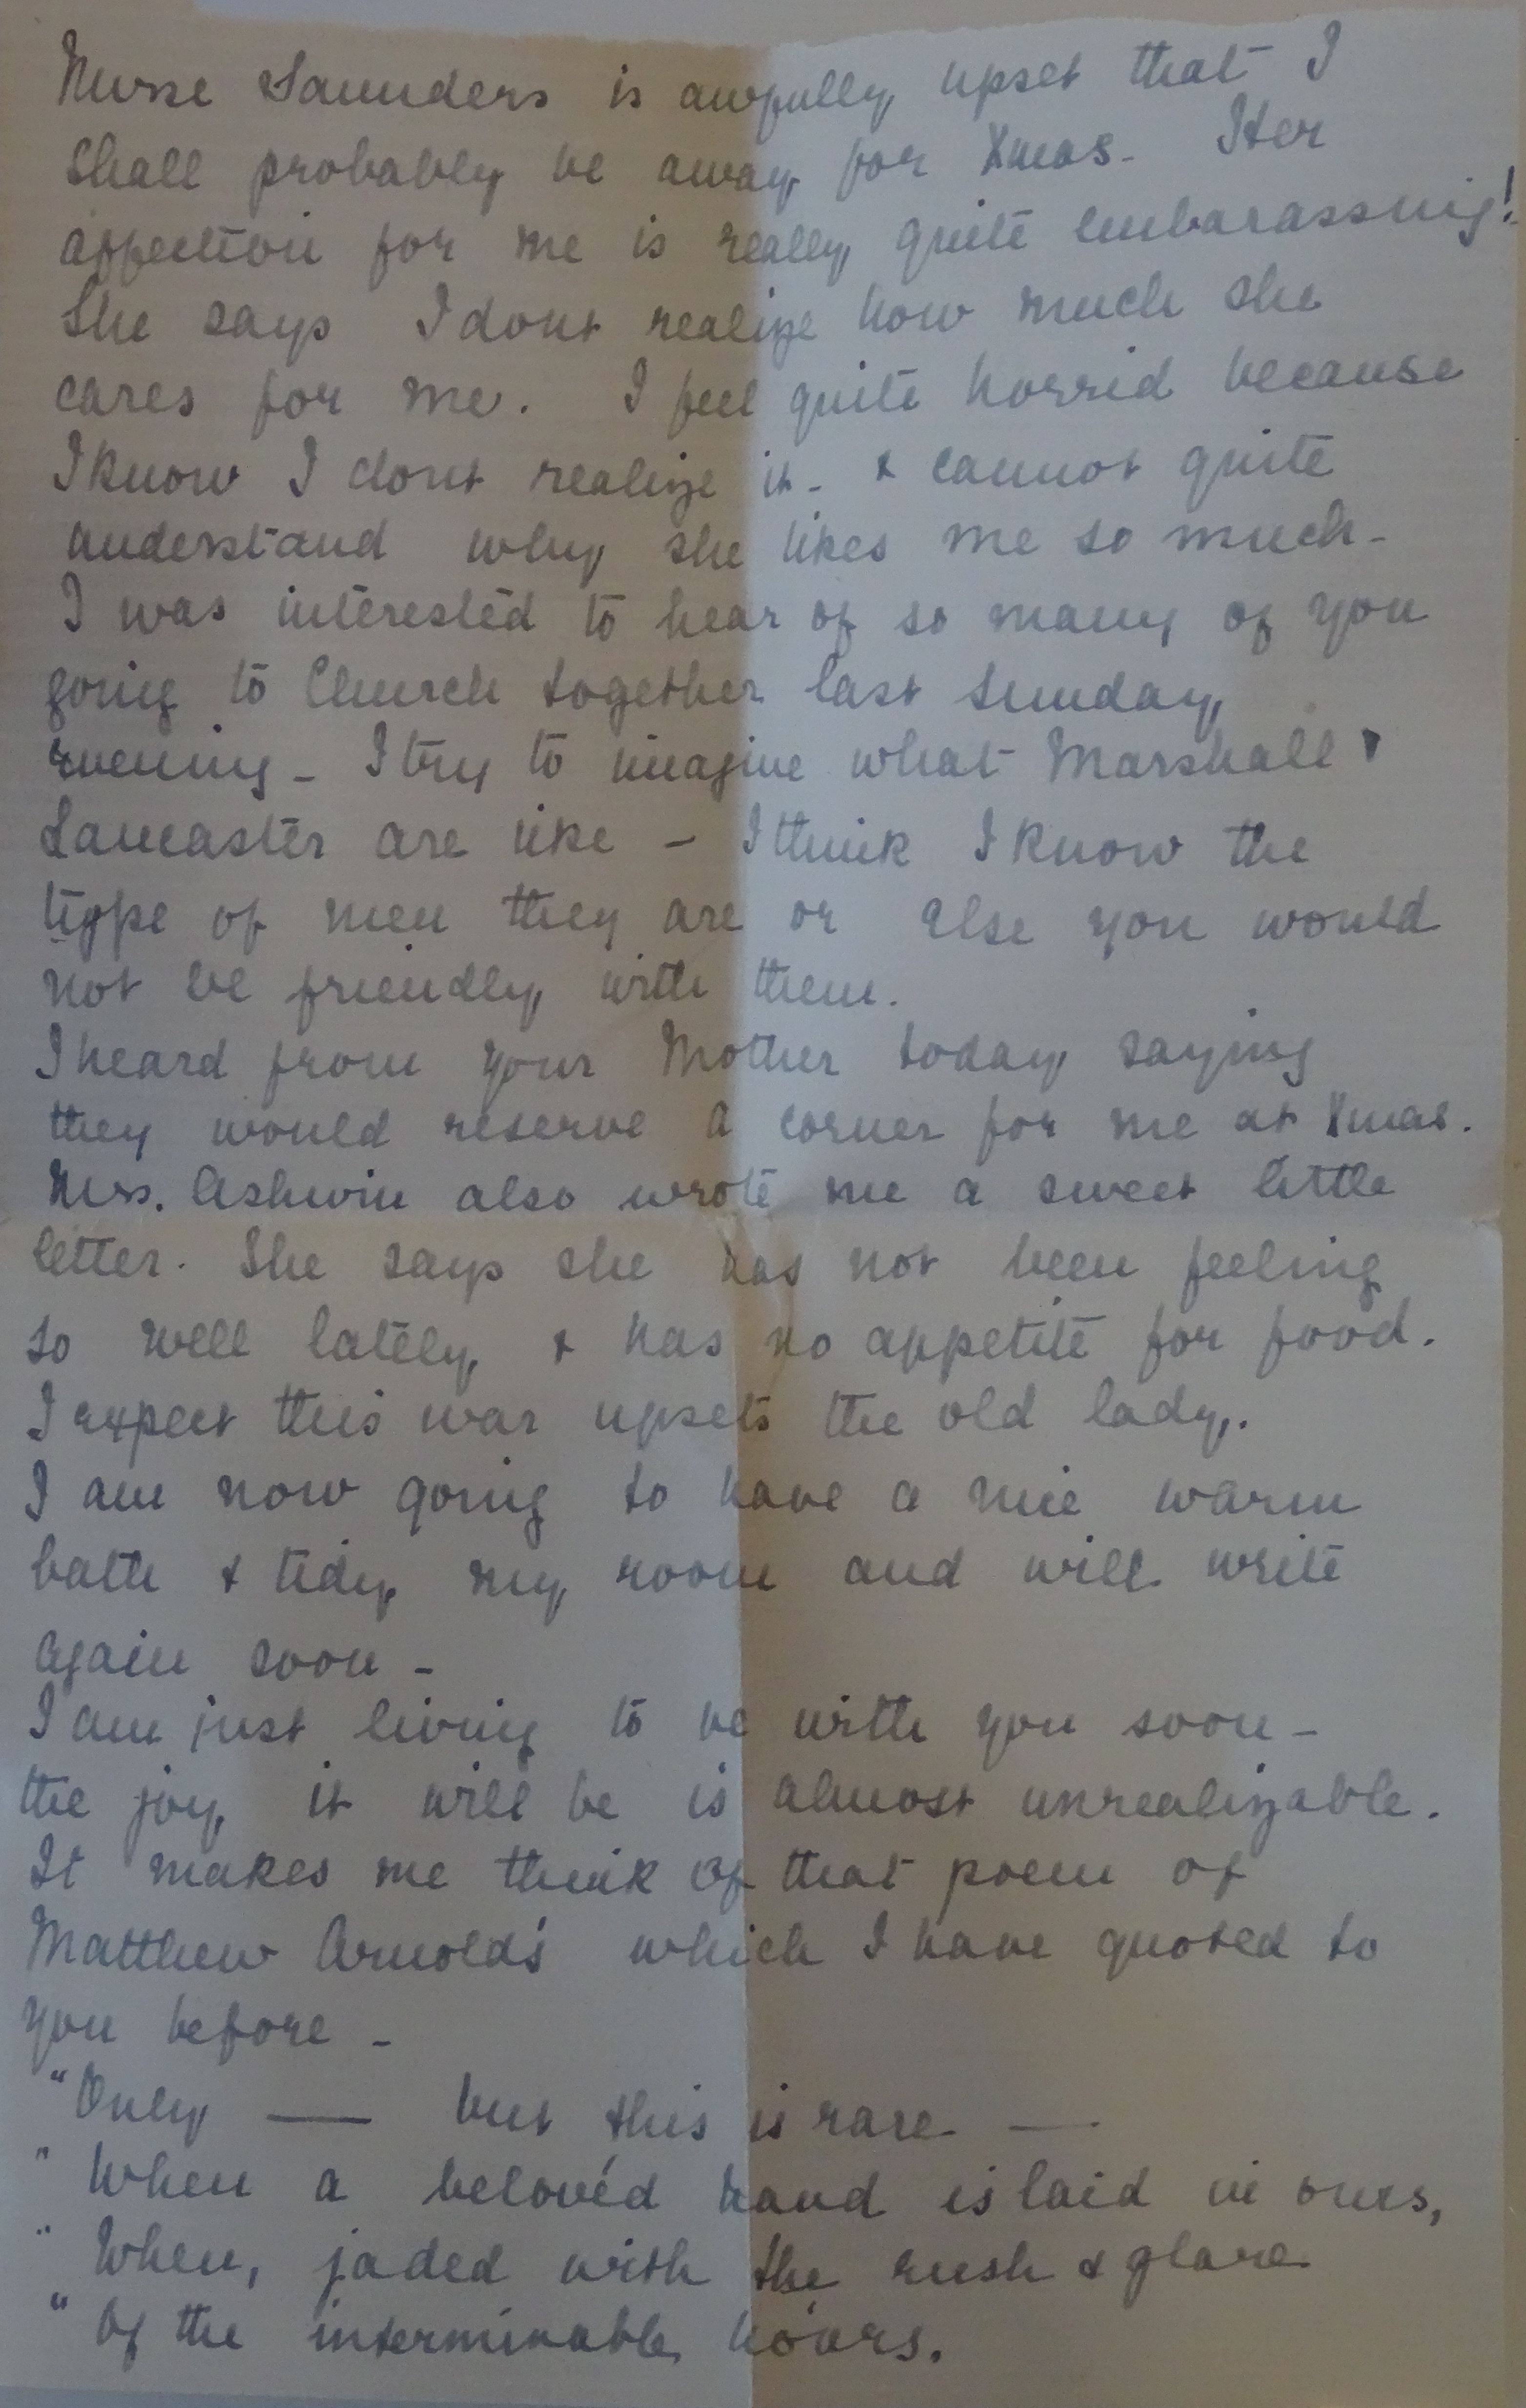 Nurse Saunders is awfully upset that I
shall probably be away for Xmas. Her
affection for me is really quite embarassing!
She says I dont realize how much she
cares for me. I feel quite horrid because
I know I dont realize it - & cannot quite
understand why she likes me so much -
I was interested to hear of so many of you
going to Church together last Sunday
evening - I try to imagine what Marshall &
Lancaster are like - I think I know the
type of men they are or else you would
not be friendly with them.
I heard from your Mother today saying
they would reserve a corner for me at Xmas.
Mrs. Ashwin also wrote me a sweet little
letter. She says she has not been feeling
so well lately, & has no appetite for food.
I expect this war upsets the old lady.
I am now going to have a nice warm
bath & tidy my room and will write
again soon -
I am just living to be with you soon -
the joy it will be is almost unrealizable.
It makes me think of that poem of
Matthew Arnold's which I have quoted to
you before -
"Only — but this is rare —
" When a belovéd hand is laid in ours,
" When, jaded with the rush & glare
" Of the interminable hours.